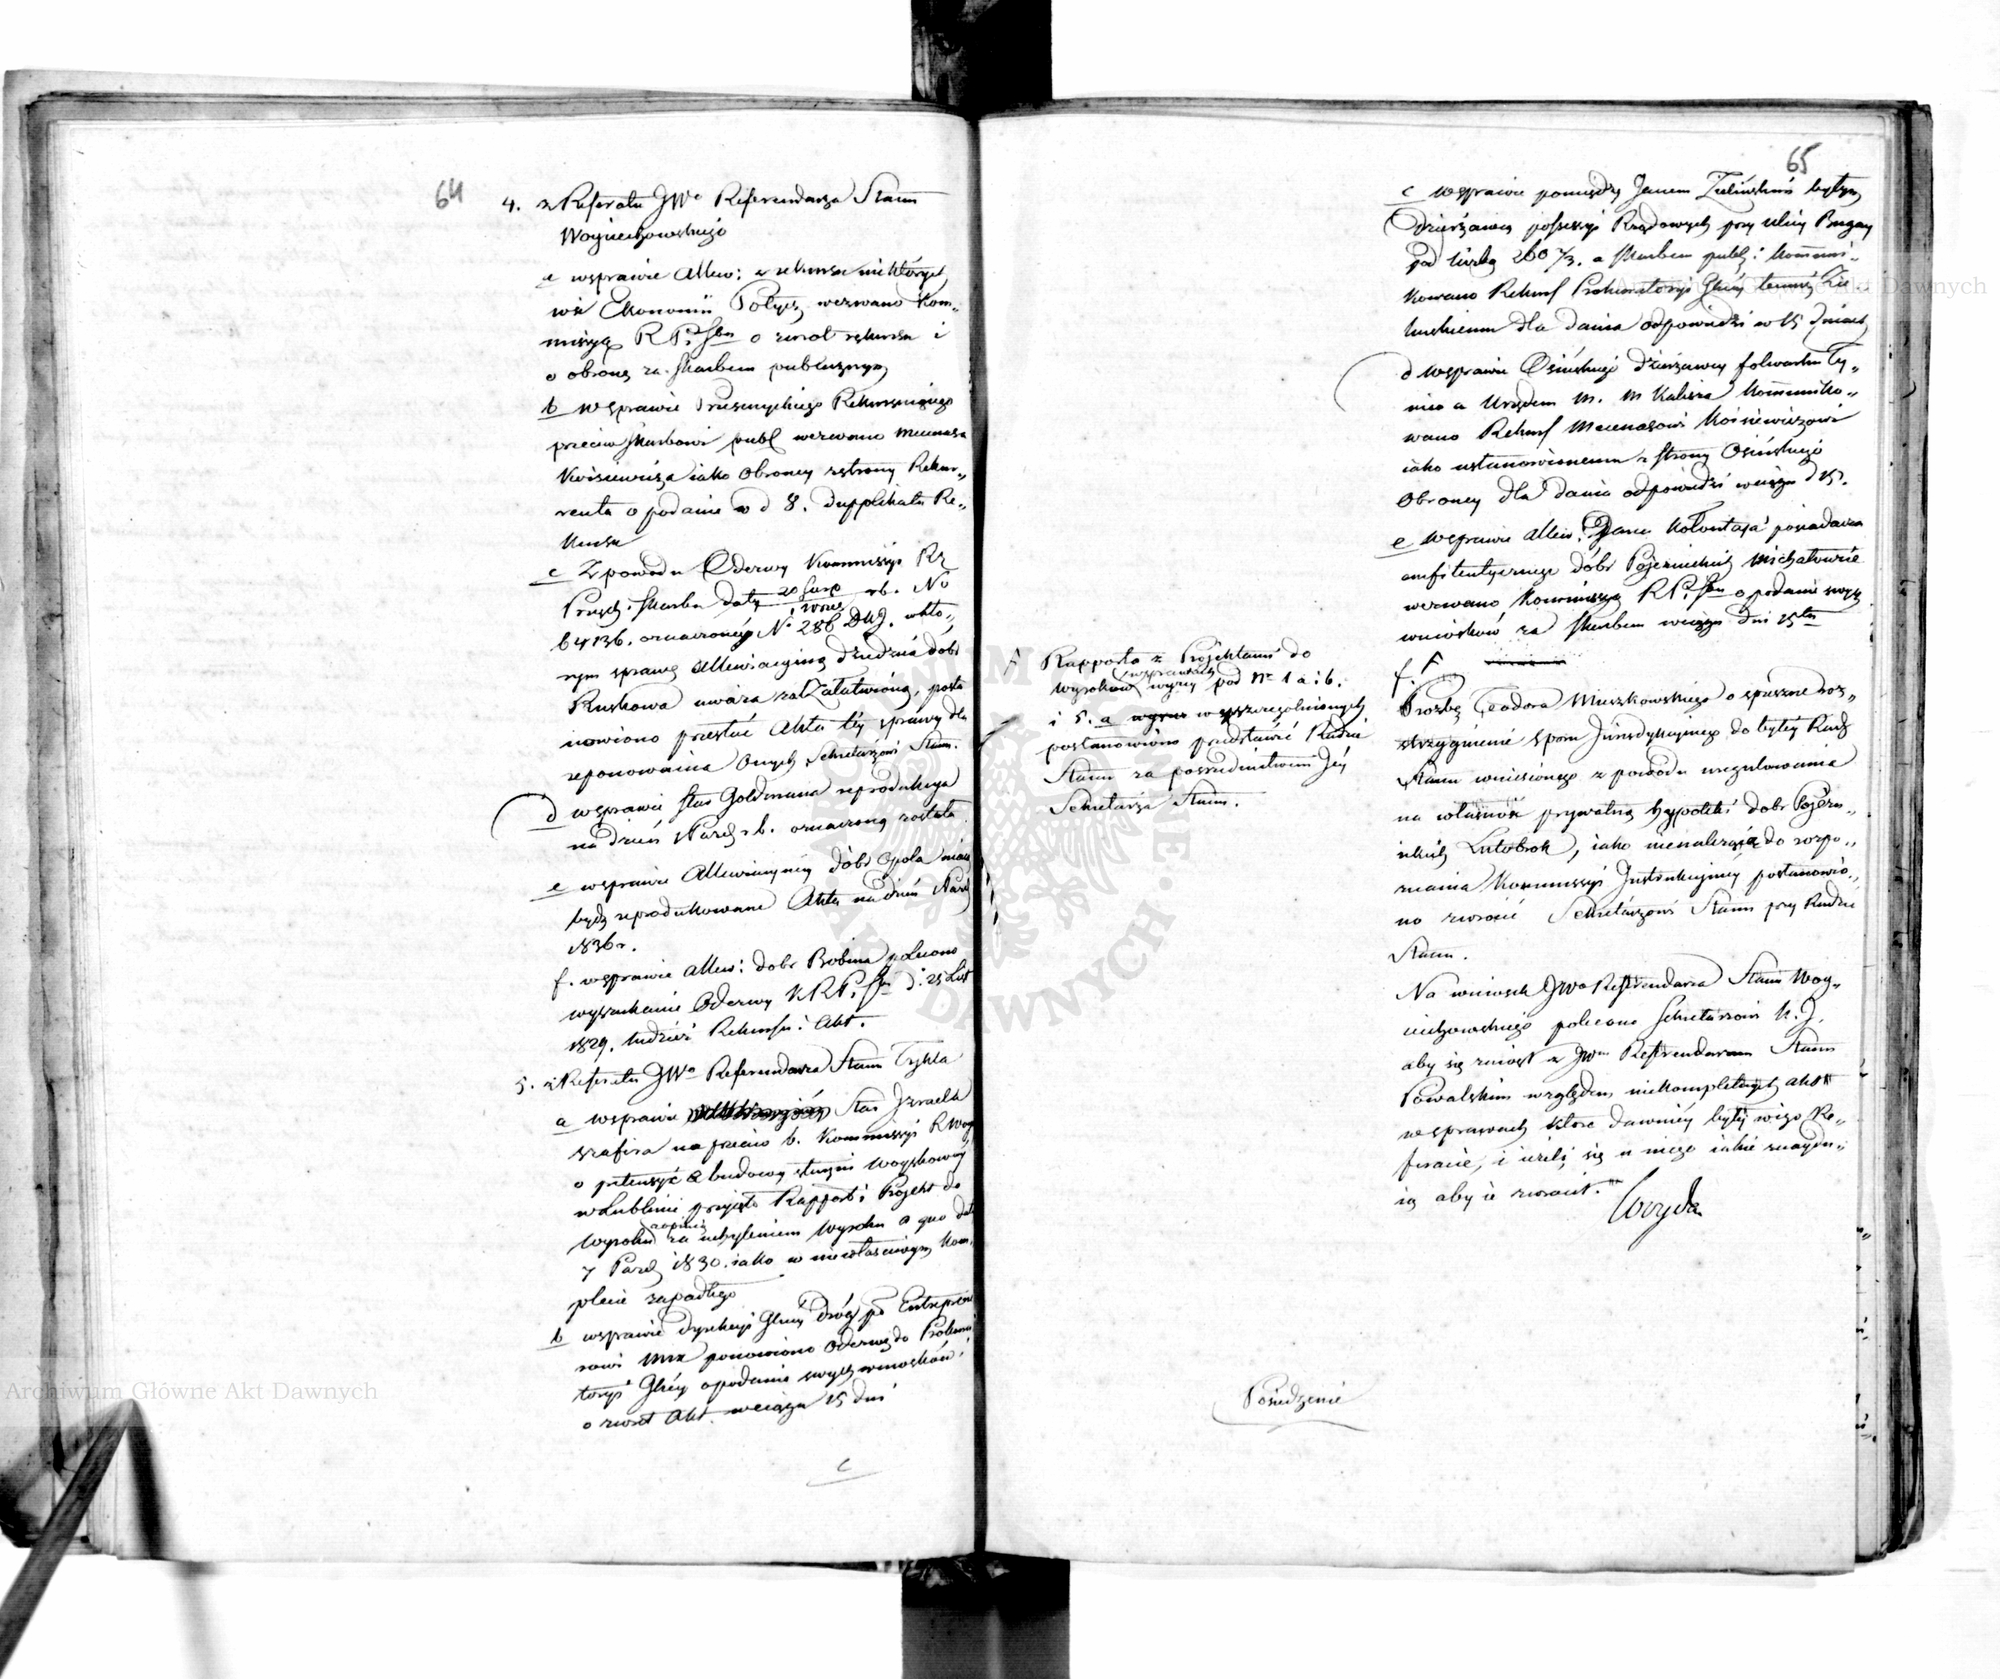 64
4. z Referatu JWo Referendarza Stanu
Woyciechowskiego
a wsprawie Allew: z rekursu niektórych
wsi Ekonomii wezwano Kom„
missyą R. P. i Sbu o zwrot rekursu i
o obronę za Skarbem publicznym
b wsprawie Rekurs
przeciw Skarbowi publ wezwano Mecenasa
Kośniewicza iako Obrońcy zstrony Rekur„
renta o podanie w d 8. dupplikatu Re„
kursu
c Zpowodu Odezwy Kommissyi Rz
Przych: i Skarbu daty rb. No
64136. oznaczonéy No 286 , wktó„
rym sprawę Allewiacyjną dóbr
Ruskowa uważa za Załatwioną, posta
nowiono przesłać Akta téy sprawy dla
reponowania Onych Sekretarzowi Stanu.
d wsprawie Star Goldmana reprodukcya
na dzień rb. oznaczoną została
e wsprawie Allewiacyjnéy dóbr Opola maią
bydź reprodukowane Akta na dzień
1836 r.
f. wsprawie Allew: dobr Bobina polecono
wyszukanie Odezwy K. R. P. i Sbu d: 25 Lut
1829, tudzież Rekursu i Akt.
5. z Referatu JWo Referendarza Stanu Tykla
a wsprawie Star Izraela
Szafira na przeciw b. Kommissyi R Woy
o pretensye z budowy stayni Woyskowéy
w Lublinie przyięto Rapport i Projekt do
zopinią
Wyroku za uchyleniem Wyroku a quo dato
7 Paźd 1830. iako w niewłaściwym Kom„
plecie zapadłego
b wsprawie Dyrekcyi Głnéy Dróg po Entrepren
ponowiono Odezwę do Prokura
toryi Głnéy o podanie swych wniosków i
o zwrot Akt. wciągu 15 dni
c
65
c wsprawie pomiędzy Janem Zielińskim byłym
Dzierżawcą possessyi Rządowych przy ulicy Bugay
pod liczbą 260 7/3. a Skarbem publ: kommuni„
kowano Rekurs Prokuratoryi Głnéy temuż Zie
lińskiemu dla dania odpowiedzi w 15 dniach
d wsprawie Osińskiego dzierżawcy folwarku Ty„
nica a Urzędem M. M Kalisza kommuniko„
wano Rekurs Mecenasowi Kośniewiczowi
iako ustanowionemu z strony Osińskiego
Obrońcy dla dania odpowiedzi wciągu d 15.
e wsprawie Allew: Jana Kołłontaja posiadacza
emfiteutycznego dóbr Pojezuickich Michałowice
wezwano Kommissyą R. P. i Sbu o podanie swych
wniosków za Skarbem wciągu dni 15tu
f.
Prozbę Teodora Mieszkowskiego o spieszne roz„
strzygnienie sporu Jurisdykcyinego do byłéy Rady
Stanu wniesionego z powodu uregulowania
na własność prywatną hypoteki dobr Pojezu„
ickich Lutobrok, iako nienależącą do rozpo„
znania Kommissyi Instrukcyinéy postanowio„
no zwrócić Sekretarzowi Stanu przy Radzie
Stanu.
Na wniosek JWo Referendarza Stanu Woy„
ciechowskiego polecono Sekretarzowi K. J.
aby się zniósł z JWm Referendarzem Stanu
Powalskim względem niekompletnych akt
wsprawach które dawniéy były wiego Re„
feracie, i ieżeli się u niego iakie znaydu„
ią aby ie zwrócił.
Rapporta z Projektami do
wsprawach
Wyroków wyżéy pod Nr 1 a i b.
i 5. a wyszczególnionych
postanowiono przedstawić Radzie
Stanu za pośrednictwem Jéy
Sekretarza Stanu.
Posiedzenie